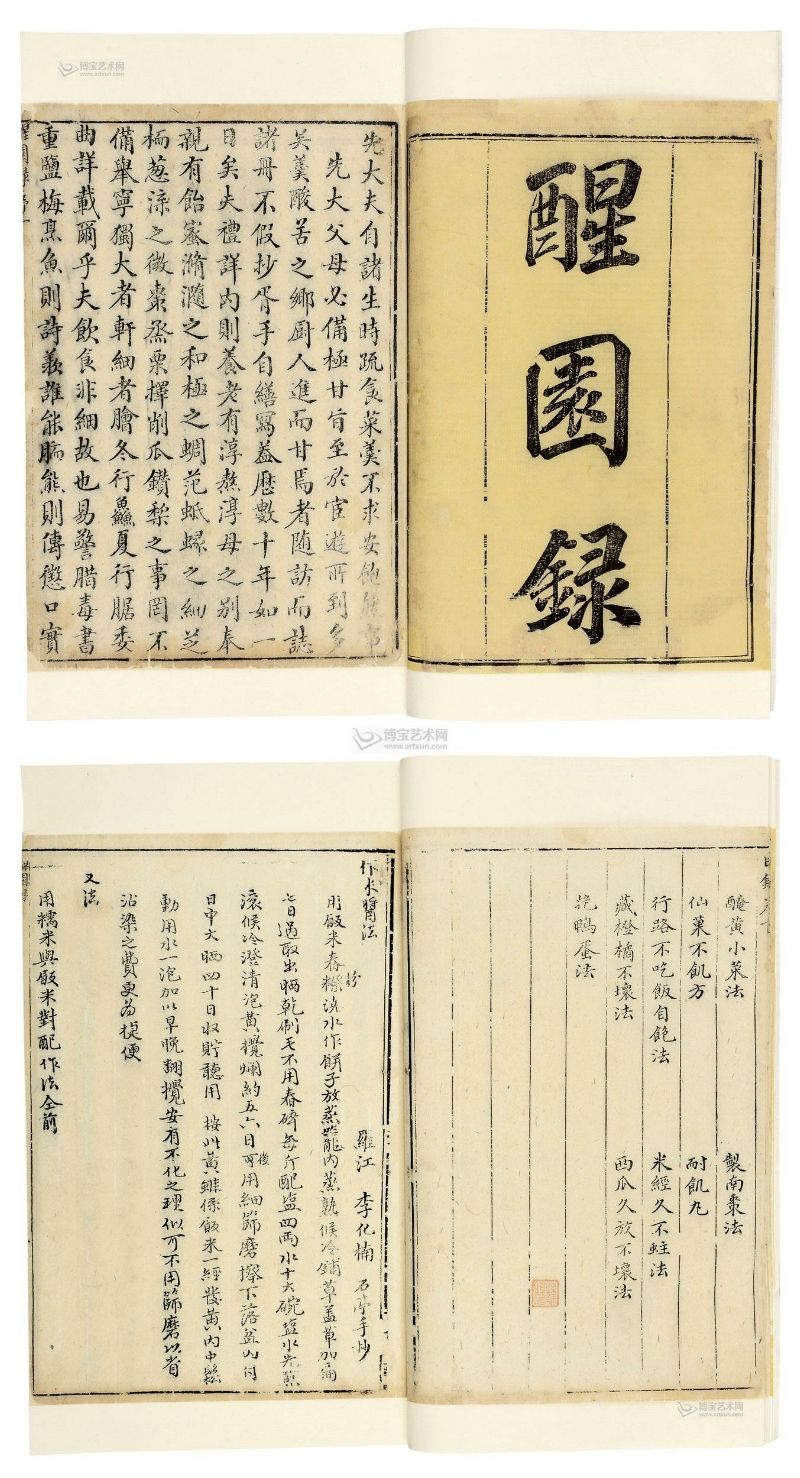 醒園録
先大夫自諸生時疏食菜羹不求安飽然事
先大父母必備極甘旨至於宦遊所到多
吴羹酸苦之鄉厨人進而甘焉者随訪而誌
諸冊不假抄胥手自繕寫蓋歷數十年如一
日矣夫禮詳内則養老有淳熬淳母之别奉
親有飴蜜滫瀡之和極之蜩范蚳蝝之細芝
栭葱渿之微棗烝栗擇削瓜鑽梨之事罔不
備舉寧獨大者軒細者膾冬行鱻夏行腒委
曲詳載爾乎夫飲食非細故也易警腊毒書
重鹽梅烹魚則詩羨誰能胹熊則傳懲口實
博宝艺术网
www.artxun.com
醃黄小菜法 製南棗法
仙菓不飢方 耐飢丸
行路不吃飯自飽法 米經久不蛀法
藏橙橘不壞法 西瓜久放不壞法
鴨蛋法
作米醬法
羅江 李化楠 石亭手抄
用飯米舂粉澆水作餅子放蒸籠内蒸熟候冷鋪草盖草加扁
七日過取出晒乾刷毛不用舂碎每斤配盐四兩水十六碗盐水先煎
滚候冷澄清泡黄攪爛約五六日後可用細篩磨擦下落盆内付
日中大晒四十日收貯聽用 按此黄雖係飯米一經發黄内中鬆
動用水一泡加以早晚翻攪安有不化之理似可不用篩磨以省
沾染之費更為捷便
又法
用糯米與飯米對配作法仝前